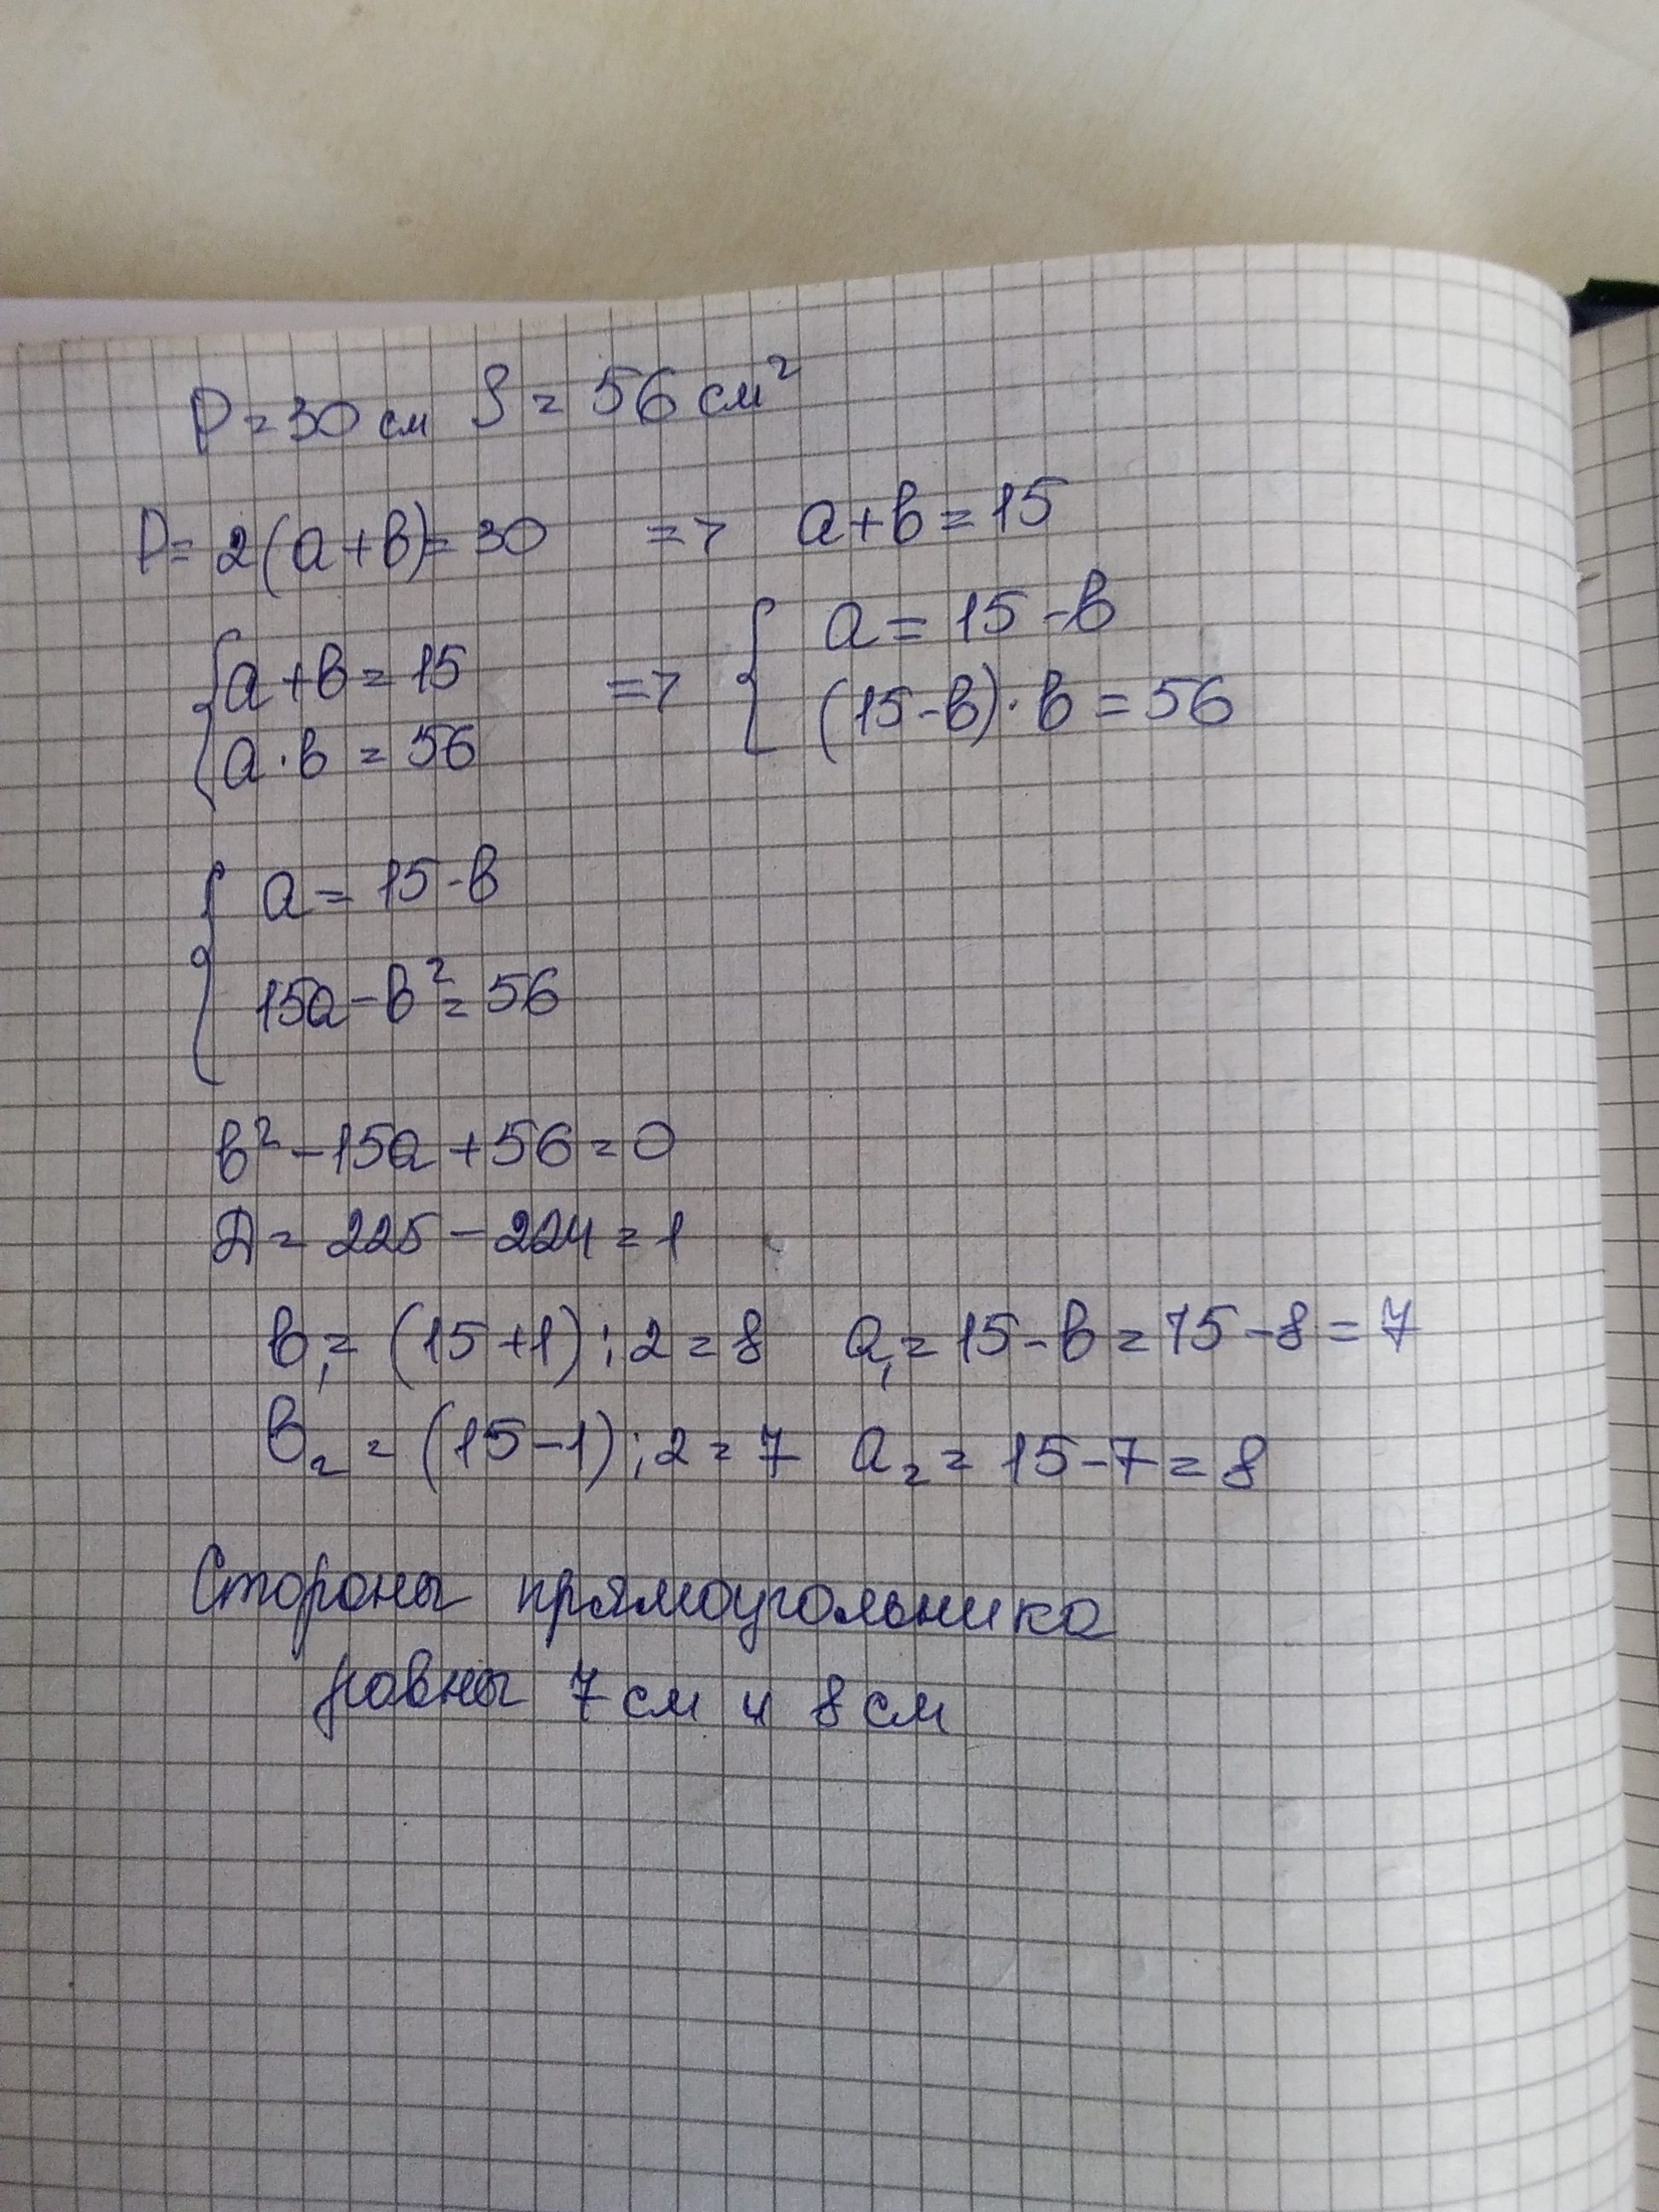 P = 30 см S = 56 см²
P = 2(a+в) = 30 => a+в = 15
{ a+в = 15 => { a = 15-в
a·в = 56 (15-в)·в = 56
{ a = 15-в
15a - в² = 56
в² - 15a + 56 = 0
Д = 225 - 224 = 1
в₁ = (15+1):2 = 8 a₁ = 15-в = 15-8 = 7
в₂ = (15-1):2 = 7 a₂ = 15-7 = 8
Стороны прямоугольника
равны 7 см и 8 см